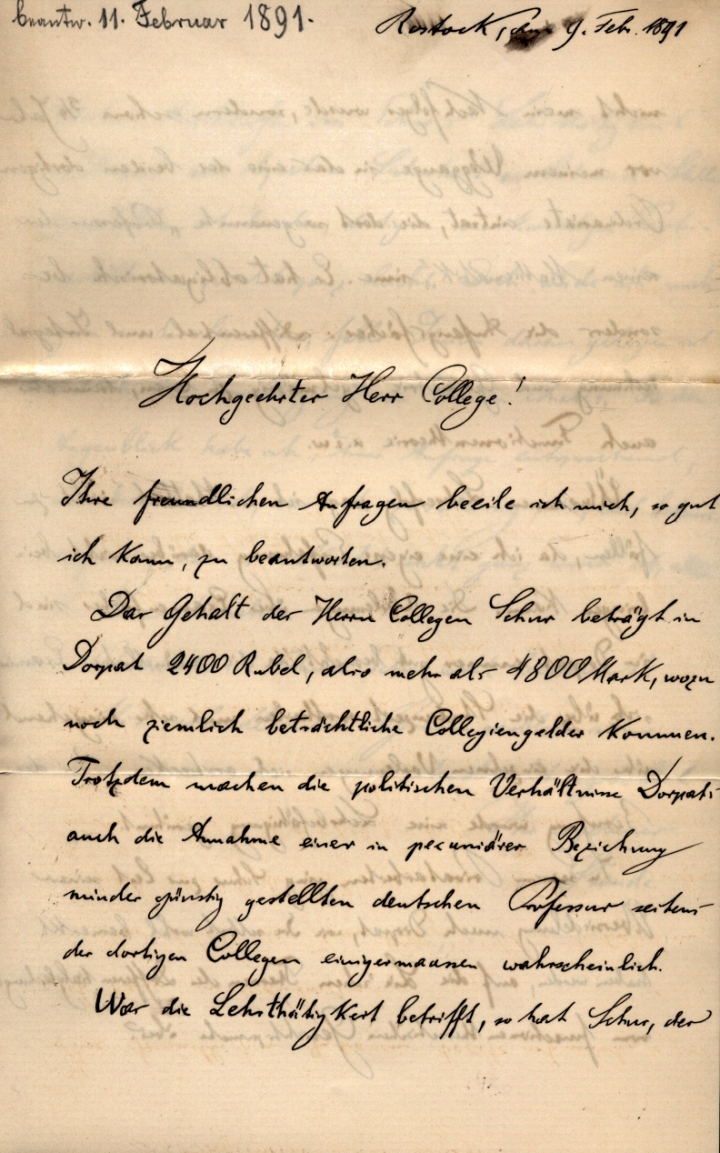 beantw. 11. Februar 1891.
Rostock, den 9. Febr. 1891
Hochgeehrter Herr College!
Ihre freundlichen Anfragen beeile ich mich, so gut
ich kann, zu beantworten.
Das Gehalt des Herrn Collegen Schur beträgt in
Dorpat 2400 Rubel, also mehr als 4800 Mark, wozu
noch ziemlich beträchtliche Collegiengelder kommen.
Trotzdem machen die politischen Verhältnisse Dorpats
auch die Annahme einer in pecuniärer Beziehung
minder günstig gestellten deutschen Professur seitens
der dortigen Collegen einigermaassen wahrscheinlich.
Was die Lehrthätigkeit betrifft, so hat Schur, der